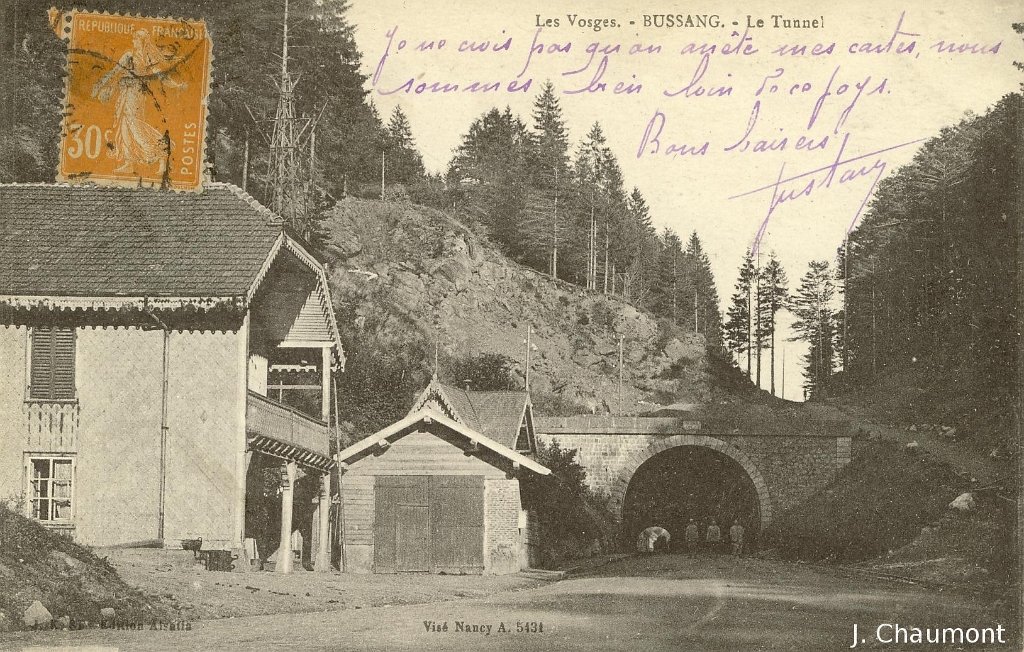 Les Vosges. - BUSSANG. - Le Tunnel
Je ne crois pas qu'on arrête mes cartes, nous
sommes bien loin de ce pays.
Bons baisers
Gustave
REPUBLIQUE FRANÇAISE
30c
POSTES
Edition Alsatia
Visé Nancy A. 5431
J. Chaumont